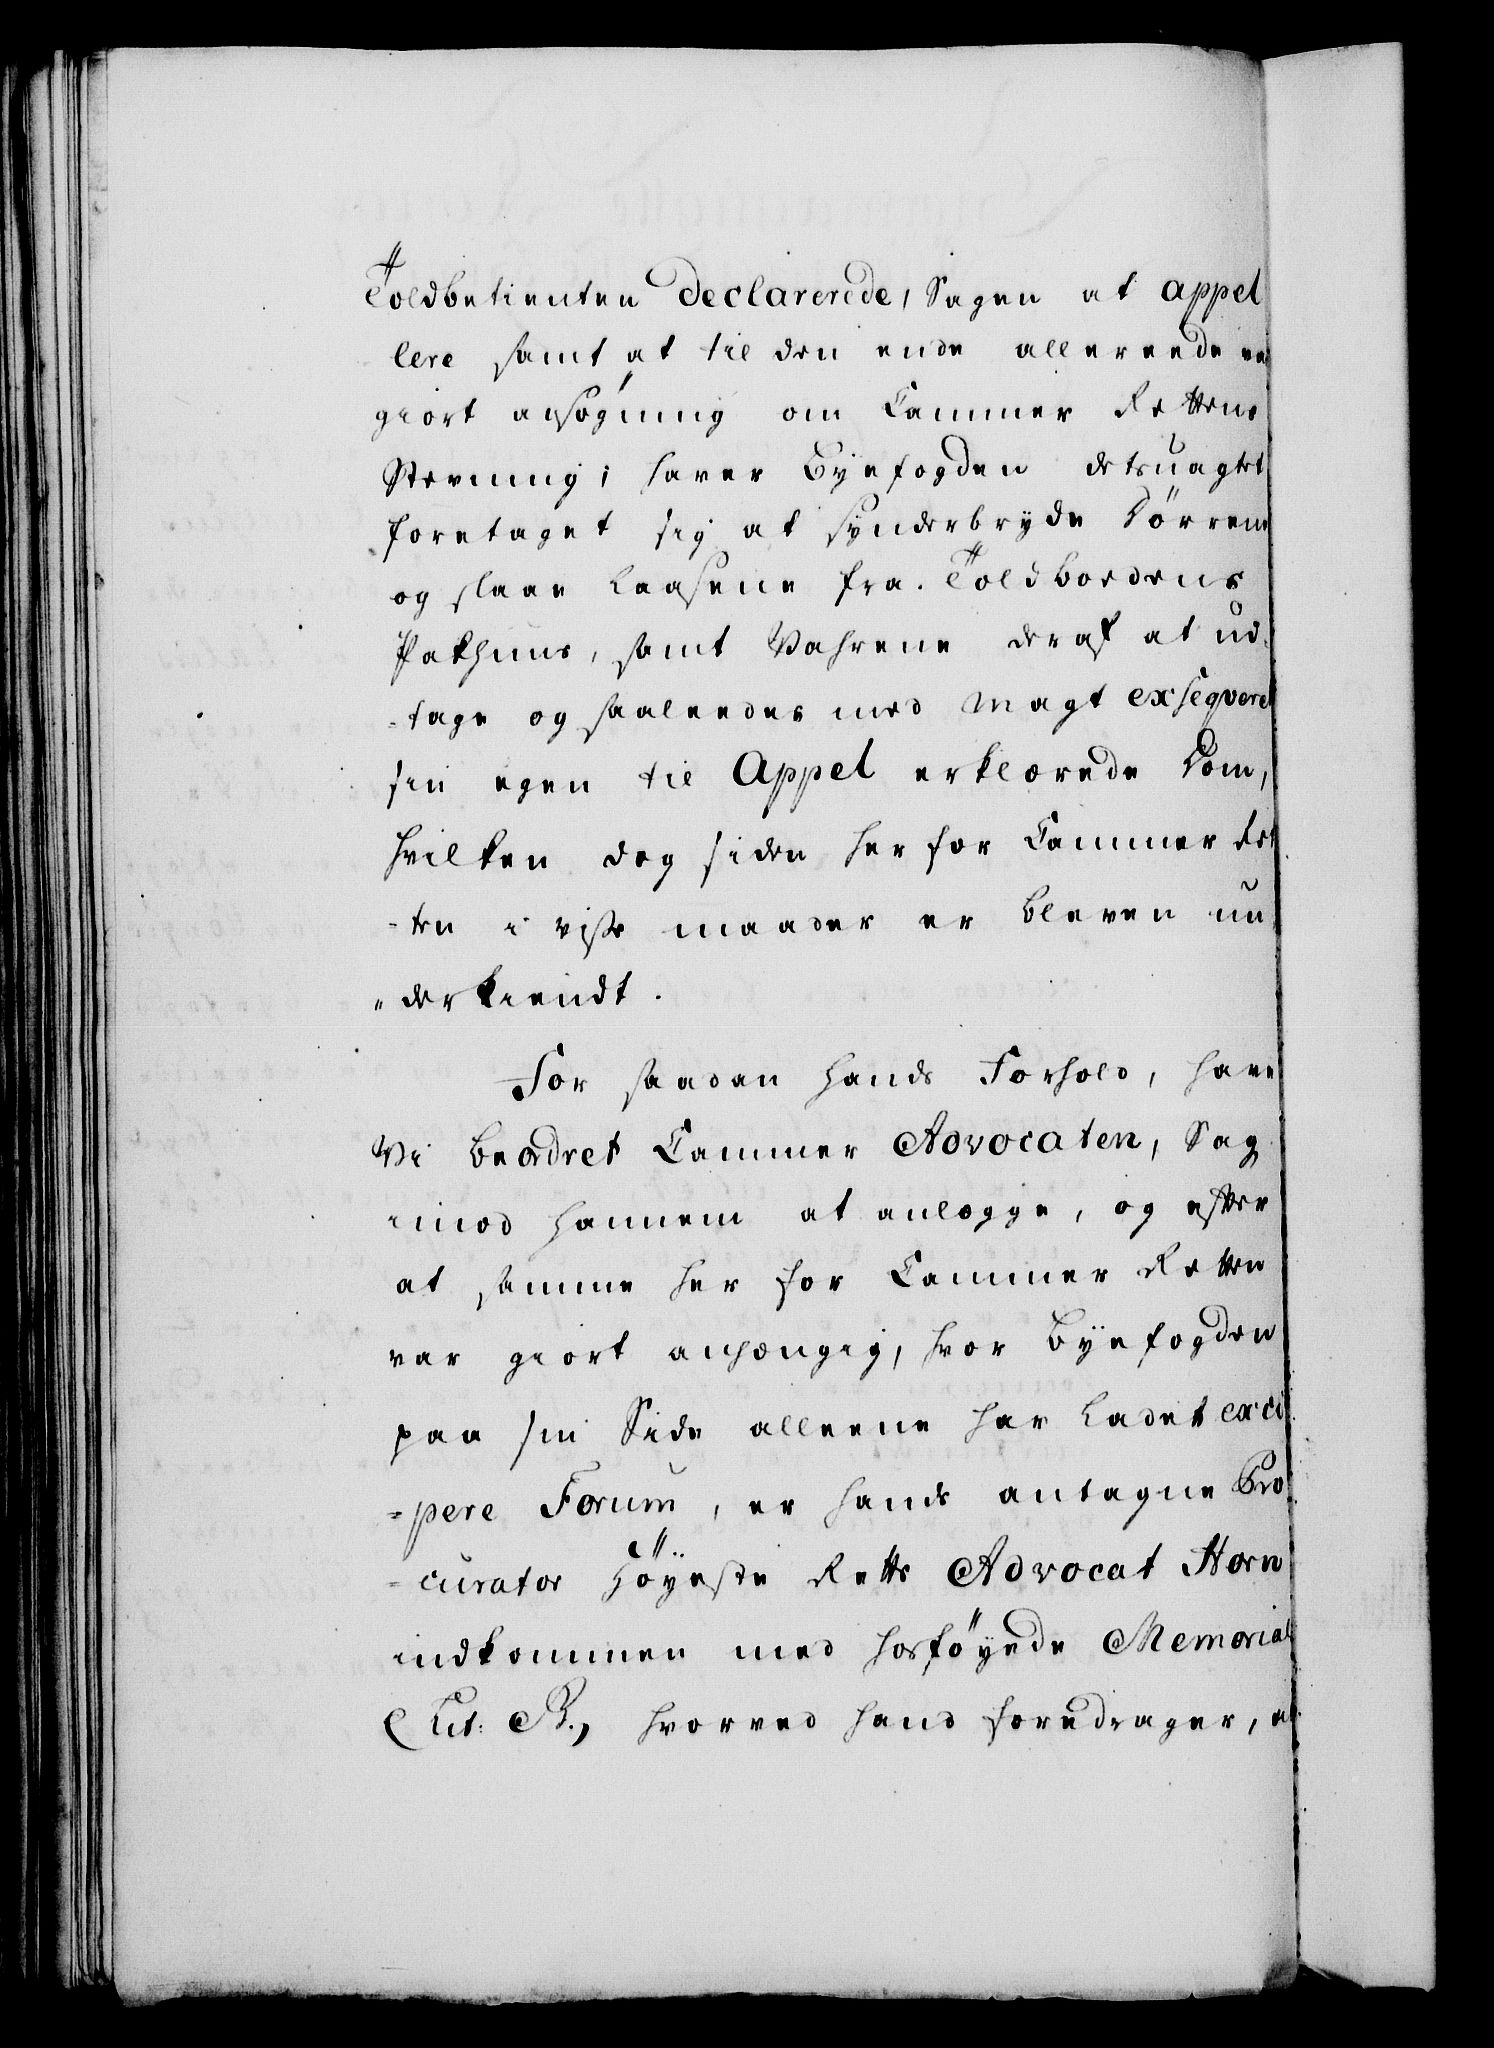 Toldbetienten declarerede, Sagen at appel
lere samt at til den ende allereede var
giort ansøgning om Cammer Rettens
Stevning; haver Byefogden detsuagtet
foretaget sig at synderbryde Dörrene
og slaae Laasene fra Toldboedens
Pakhuus, samt Vahrene deraf at ud-
-tage og saaleedes med Magt exseqvere
sin egen til Appel erklærede Dom,
hvilken dog siden her for Cammer Ret
-ten i visse maader er bleven un
-derkiendt.
For saadan hands Forhold, have
Vi beordret Cammer Advocaten, Sag
imod hannem at anlægge, og efter
at samme her for Cammer Retten
var giort anhængig, hvor Byefogden
paa sin Side alleene har ladet exci
-pere Forum, er hands antagne Pro
-curator Höyeste Retts Advocat Horn
indkommen med hosföyede Memorial
(Lit: B.) hvorved hand foredrager, at